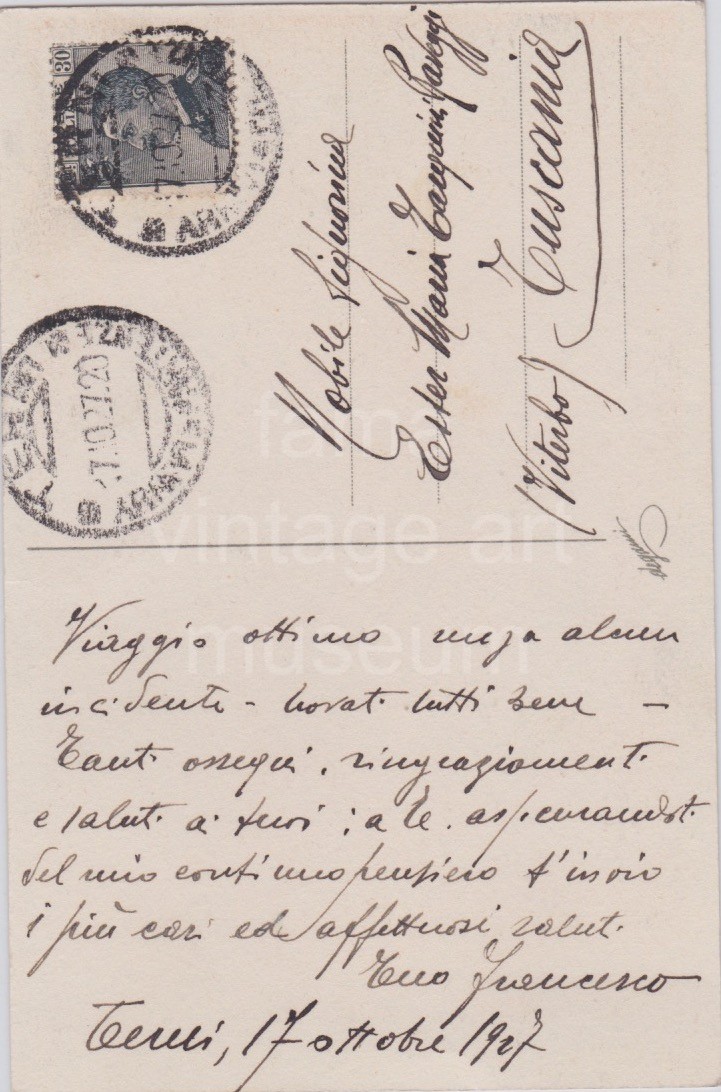 Nobile Signorina
Ester Maria
Tuscania
(Viterbo)
Viaggio ottimo senza alcun
incidente - trovati tutti bene -
Tanti ossequi, ringraziamenti
e saluti ai tuoi; a te, assicurandoti
del mio continuo pensiero t'invio
i più cari ed affettuosi saluti.
Tuo Francesco
Terni, 17 ottobre 1927
TERNI
17.10.27.20
farna
vintage art
museum